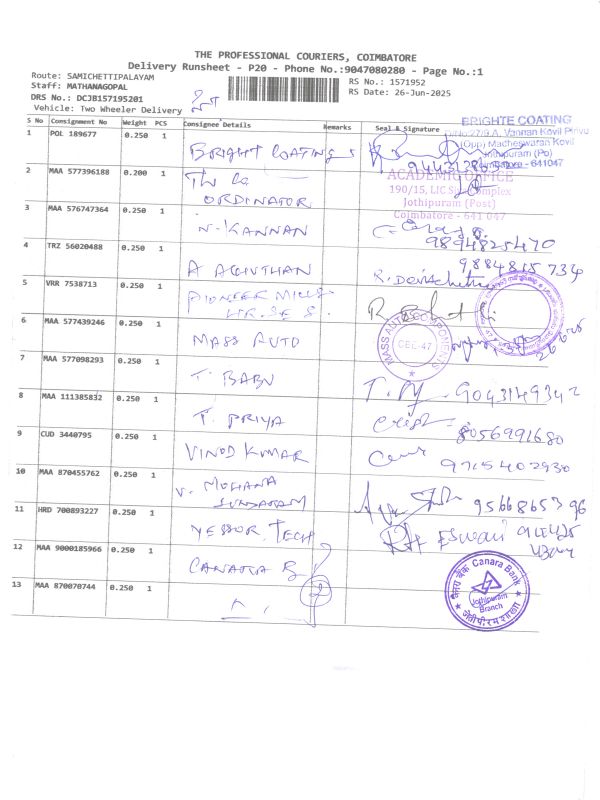 THE PROFESSIONAL COURIERS, COIMBATORE
Delivery Runsheet - P20 - Phone No.:9047080280 - Page No.:1
Route: SAMICHETTIPALAYAM
RS No.: 1571952
Staff: MATHANAGOPAL
RS Date: 26-Jun-2025
DRS No.: DCJB157195201
Vehicle: Two Wheeler Delivery
S No Consignment No Weight PCS Consignee Details Remarks Seal & Signature
BRIGHTE COATING
27/9.A, Vannan Kovil Pirivu
(Opp) Madheswaran Kovil
Jothipuram (Po)
Coimbatore - 641047
1 POL 189677 0.250 1 BRIGHT COATINGS
2 MAA 577396188 0.200 1 THE CO
ORDINATOR
ACADEMIC OFFICE
190/15, LIC Complex
Jothipuram (Post)
Coimbatore - 641 047
3 MAA 576747364 0.250 1 N. KANNAN
9894825470
4 TRZ 56020488 0.250 1 A
9884815734
5 VRR 7538713 0.250 1 PIONEER MILLS
HR. SE S.
6 MAA 577439246 0.250 1 MASS AUTO
MASS AUTO COMPONENTS
CBE-47
7 MAA 577098293 0.250 1 T. BABU
9043149342
8 MAA 111385832 0.250 1 T. PRIYA
8056991680
9 CUD 3440795 0.250 1 VINOD KUMAR
9715402930
10 MAA 870455762 0.250 1 V. MOHANA
SUNDARAM
9566865396
11 HRD 700893227 0.250 1 YESSOR TECH
Eswari
12 MAA 9000185966 0.250 1 CANARA B
13 MAA 870070744 0.250 1
केनरा बैंक Canara Bank
Jothipuram
Branch